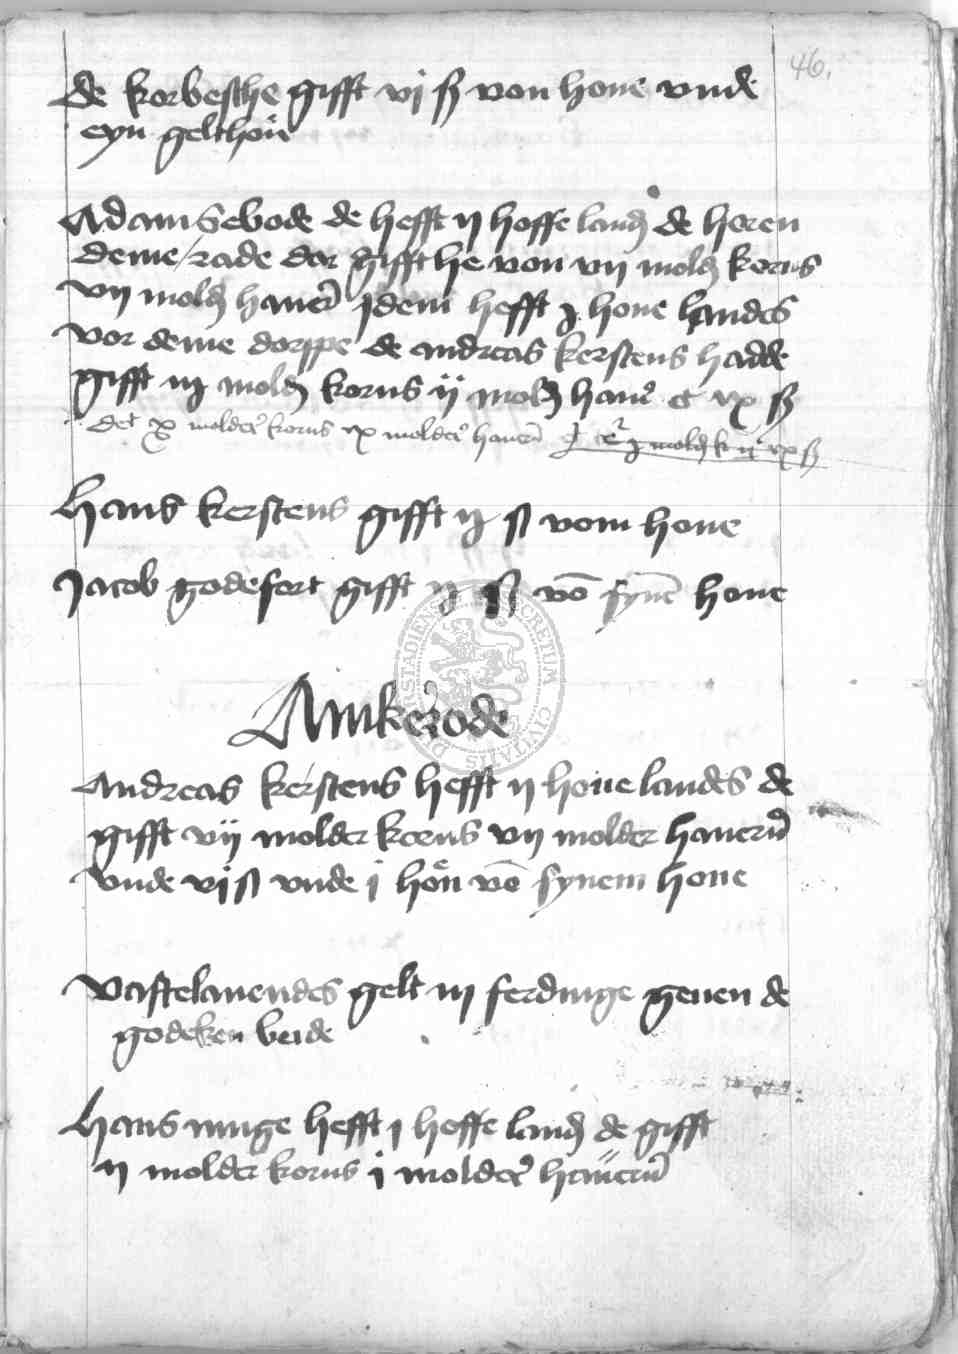 46.
de korbesche gifft vj ß von houe vnde
eyn gelthön
Adam Sebode de hefft ij hoffe land de heren
deme rade dar gifft he von vij mold korns
vij mold hauer Jdem hefft j houe landes
vor deme dorppe de andreas kerstens hadde
gifft iij mold korns ij mold hauer
det x molder korns ix molder hauern
Hans kerstens gifft ij ß vom houe
Jacob godefort gifft ij ß vō synē houe
Amkerode
Andreas kerstens hefft ij houe landes de
gifft vij molder korns vij molder hauern
vnde vj ß vnde j hön vō synem houe
vastelauendes gelt iij ferdinge geuen de
godeken beide
Hans runge hefft j hoffe land de gifft
ij molder korns j molder hauern
SECRETUM CIVITATIS